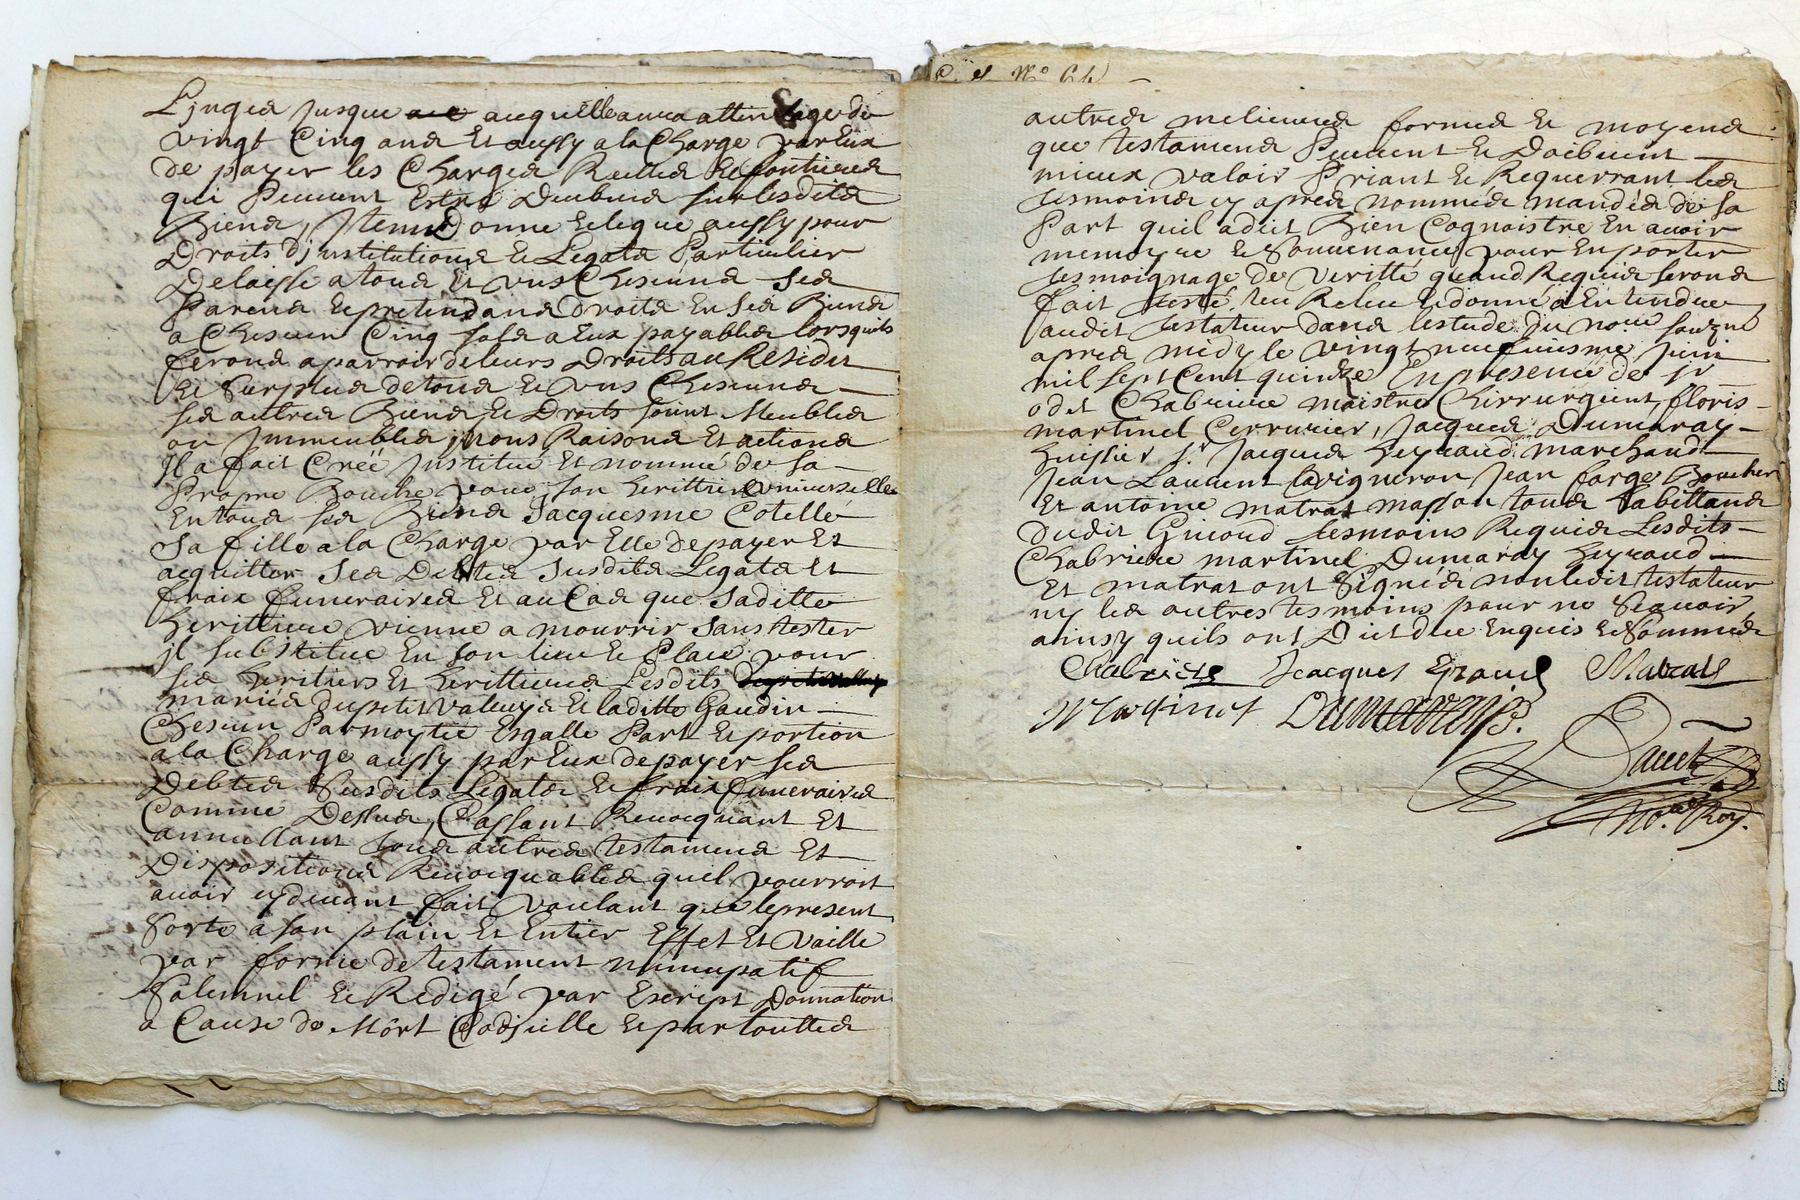 Linges jusque a ce quelle aura attin lage de
vingt cinq ans Et aussy a la Charge par Eux
de payer les Charges Reelles Et fontieres
qui Peuvent Estre Deubues sur lesdits
Biens, Item Donne Et legue aussy pour
Droits d'institutions Et Legats Particulier
Delaisse a tous Et uns Chescuns Ses
Parens Et pretendans Droits En Ses Biens
a Chescun Cinq sols a Eux payables lorsquils
feront aparroir de leurs Droits au Residu
Et Surplus de tous Et uns Chescuns
ses autres Biens Et Droits soint Meubles
ou Immeubles noms Raisons Et actions
il a fait Créé Institué Et nommé de sa
Propre Bouche pour son herittiere universelle
En tous ses Biens Jacquesme Cotelle
Sa fille a la Charge par Elle de payer Et
acquitter Ses Debtes Susdits Legats Et
fraix funeraires Et au Cas que Saditte
herittiere vienne a mourrir Sans tester
il substitue En son lieu Et Place pour
ses heritiers Et herittieres Lesdits
mariés du petit Valleys Et laditte Gaudin
Chescun Par moytié Esgalle Part Et portion
a la Charge aussy par Eux de payer ses
Debtes Susdits Legats Et fraix funeraires
Comme Dessus, Cassant Revocquant Et
annullant tous autres testamens Et
Dispositions Revocquables quil pourroit
avoir cydevant fait Voulant que le present
Sorte a son plain Et Entier Effet Et Vaille
par forme de testament nuncupatif
Solemnel Et Redigé par Escript Donnation
a Cause de Mort Codicille Et par touttes
autres melieures formes Et moyens
que testamens Peuvent Et Doibvent
mieux valoir Priant Et Requerrant les
tesmoins cy apres nommés mandés de sa
Part quil a dit Bien Cognoistre En avoir
memoyre Et Souvenance pour En porter
tesmoignage de Veritté quand Requis seront
fait testé leu Releu Et donné a Entendre
audit testateur dans lestude du nore souzné
apres midy le Vingt neufuiesme Juin
mil sept Cent quinze En presence de sr
odet Chabriere maistre Chirrurgient, floris
martinel Cerrurier, Jacques Dumaray
huissier sr Jacques heyraud marchand
Jean Laurent Vigneron Jean farge Boucher
Et antoine matrat masson tous habittans
dudit Givord tesmoins Requis Lesdits
Chabriere martinel Dumaray heyraud
Et matrat ont Signés non ledit testateur
ny les autres tesmoins pour ne Scavoir
ainsy quils ont Dict due Enquis Et Sommés
Chabriere Jacques Eraud Matrat
Martinel Dumaray
No.re Roy.